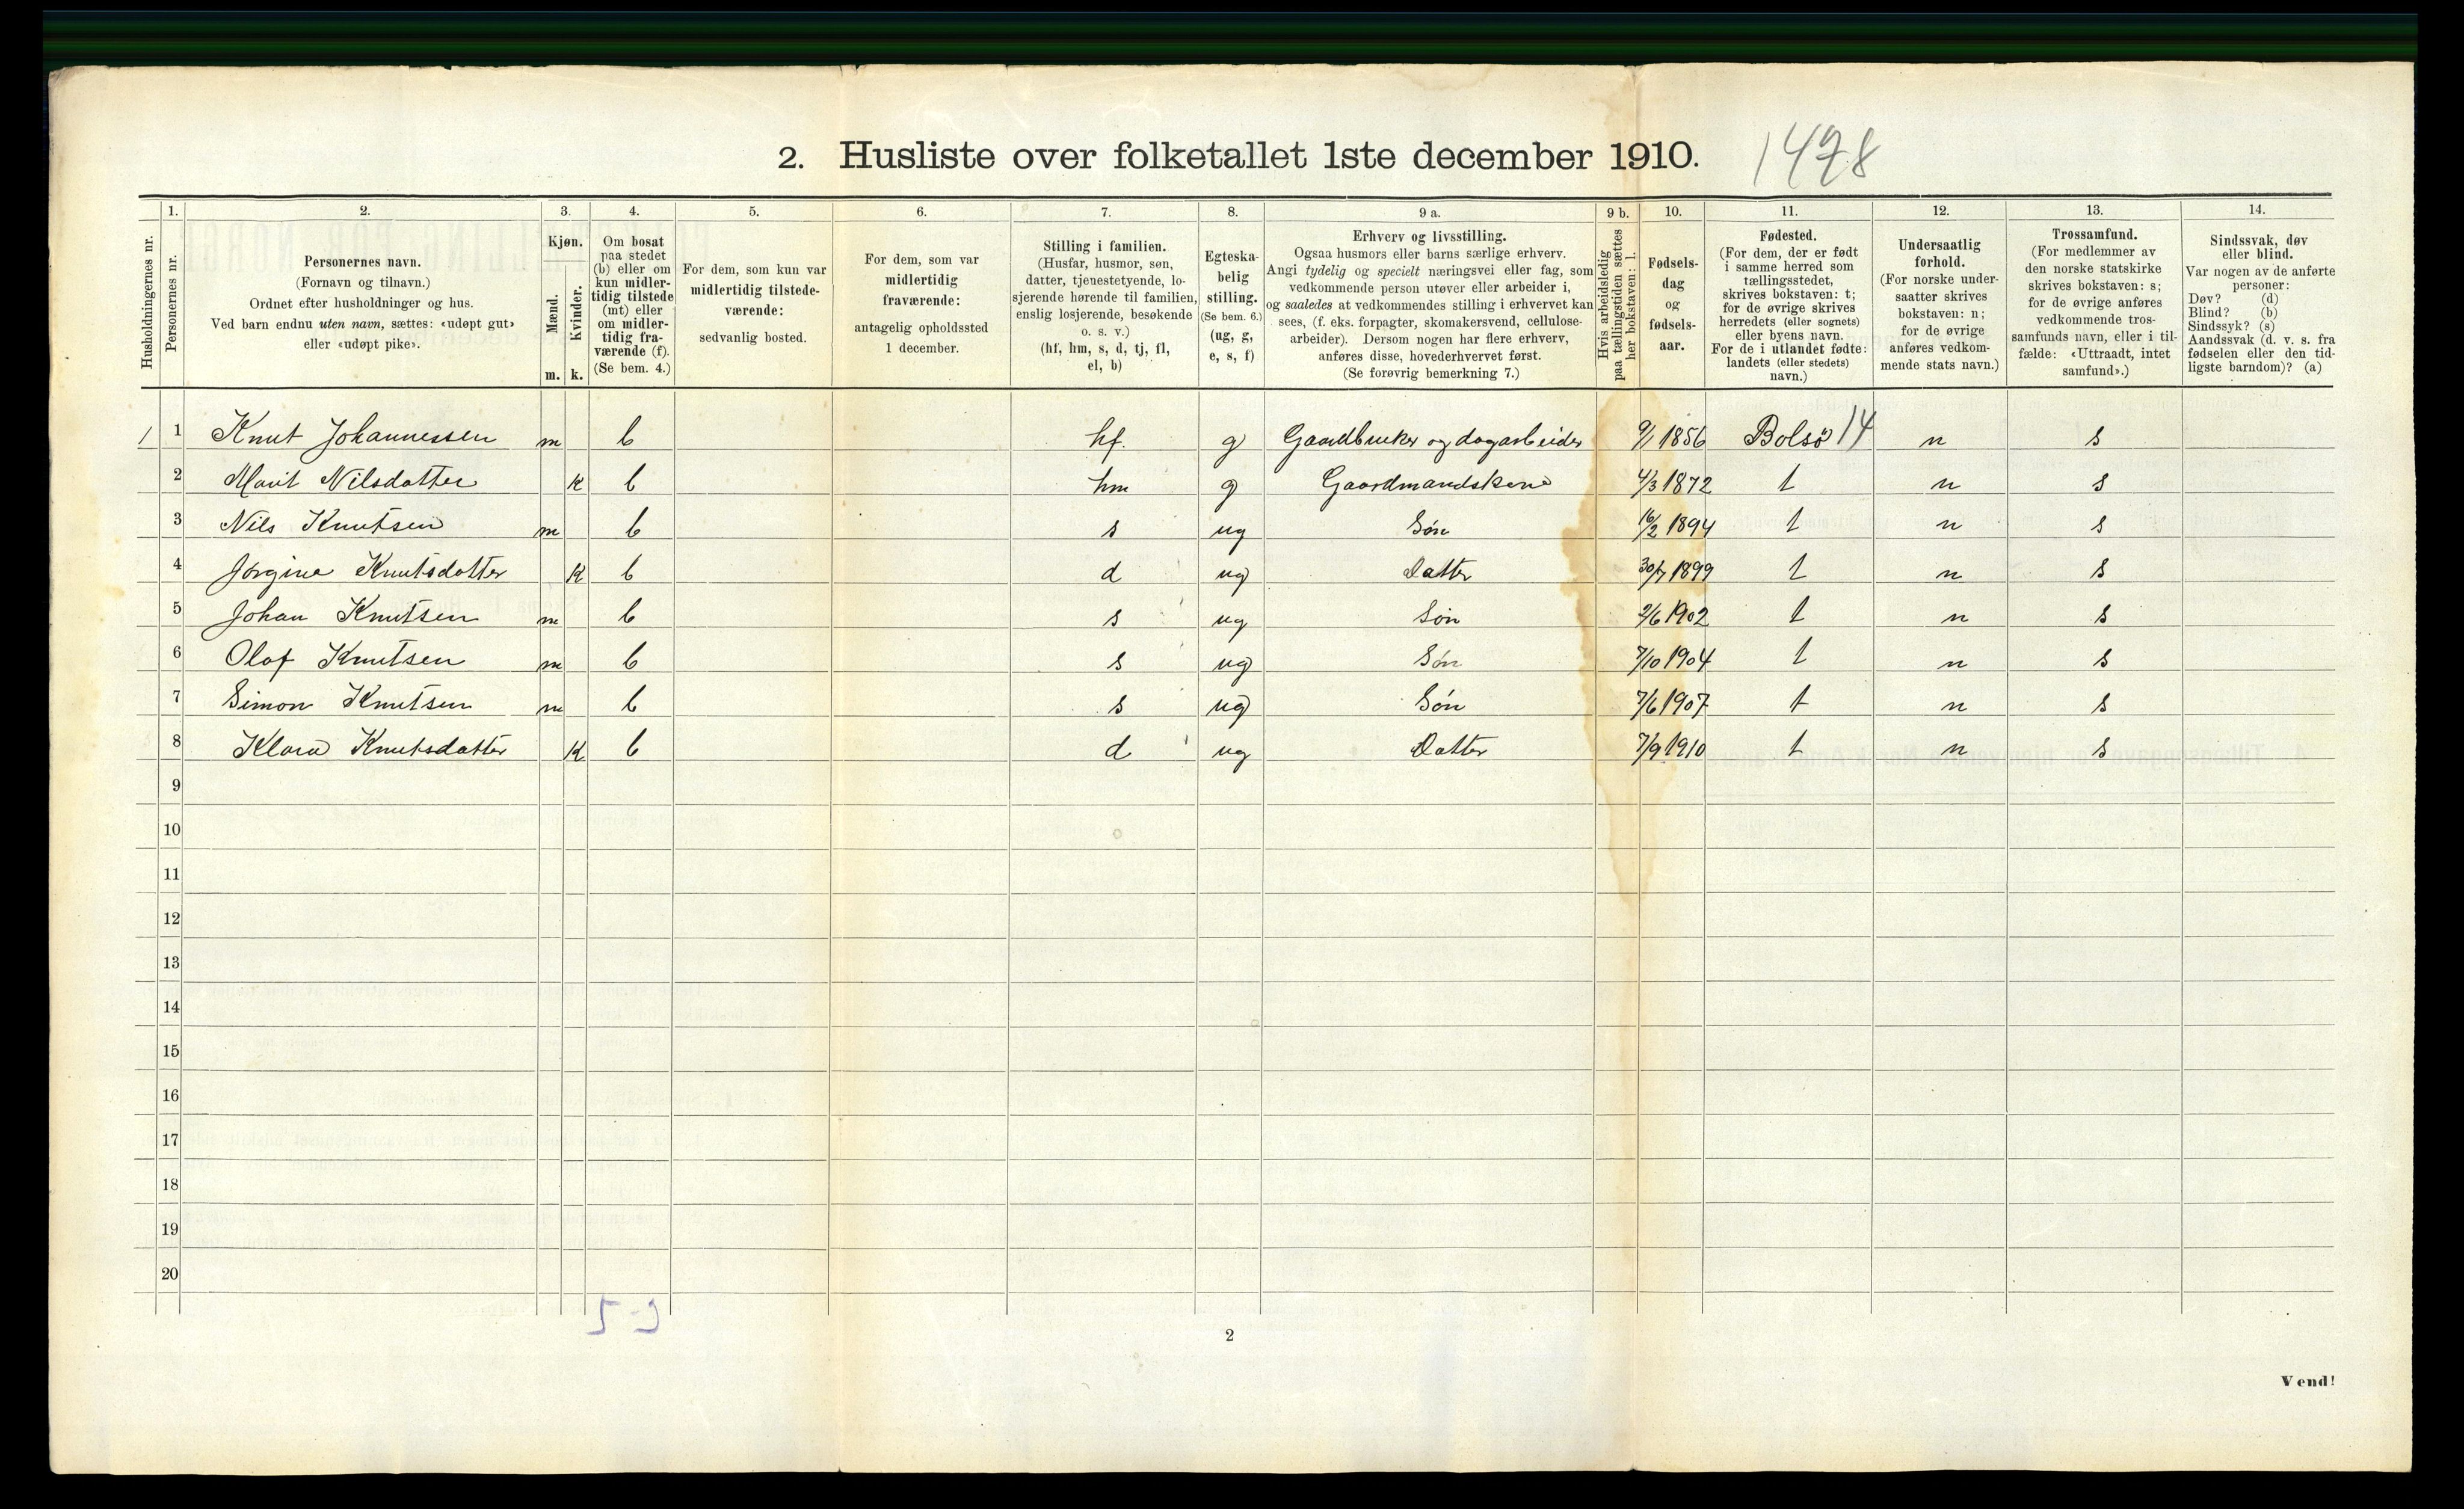 2. Husliste over folketallet 1ste december 1910. 1478
Husholdningernes nr.
1. Personernes nr.
2. Personernes navn.
(Fornavn og tilnavn.)
Ordnet efter husholdninger og hus.
Ved barn endnu uten navn, sættes: «udøpt gut»
eller «udøpt pike».
3. Kjøn.
Mænd. Kvinder.
m. k.
4. Om bosat
paa stedet
(b) eller om
kun midler-
tidig tilstede
(mt) eller
om midler-
tidig fra-
værende (f).
(Se bem. 4.)
5. For dem, som kun var
midlertidig tilstede-
værende:
sedvanlig bosted.
6. For dem, som var
midlertidig
fraværende:
antagelig opholdssted
1 december.
7. Stilling i familien.
(Husfar, husmor, søn,
datter, tjenestetyende, lo-
sjerende hørende til familien,
enslig losjerende, besøkende
o. s. v.)
(hf, hm, s, d, tj, fl,
el, b)
8. Egteska-
belig
stilling.
(Se bem. 6.)
(ug, g,
e, s, f)
9 a. Erhverv og livsstilling.
Ogsaa husmors eller barns særlige erhverv.
Angi tydelig og specielt næringsvei eller fag, som
vedkommende person utøver eller arbeider i,
og saaledes at vedkommendes stilling i erhvervet kan
sees, (f. eks. forpagter, skomakersvend, cellulose-
arbeider). Dersom nogen har flere erhverv,
anføres disse, hovederhvervet først.
(Se forøvrig bemerkning 7.)
9 b. Hvis arbeidsledig
paa tællingstiden sættes
her bokstaven: l.
10. Fødsels-
dag
og
fødsels-
aar.
11. Fødested.
(For dem, der er født
i samme herred som
tællingsstedet,
skrives bokstaven: t;
for de øvrige skrives
herredets (eller sognets)
eller byens navn.
For de i utlandet fødte:
landets (eller stedets)
navn.)
12. Undersaatlig
forhold.
(For norske under-
saatter skrives
bokstaven: n;
for de øvrige
anføres vedkom-
mende stats navn.)
13. Trossamfund.
(For medlemmer av
den norske statskirke
skrives bokstaven: s;
for de øvrige anføres
vedkommende tros-
samfunds navn, eller i til-
fælde: «Uttraadt, intet
samfund».)
14. Sindssvak, døv
eller blind.
Var nogen av de anførte
personer:
Døv? (d)
Blind? (b)
Sindssyk? (s)
Aandssvak (d. v. s. fra
fødselen eller den tid-
ligste barndom)? (a)
1 1 Knut Johannessen m b hf. g Gaardbruker og dagarbeider 9/1 1856 Bolsö 14 n s
2 Marit Nilsdatter k b hm g Gaardmandskone 4/3 1872 t n s
3 Nils Knutsen m b s ug Søn 16/2 1894 t n s
4 Jørgine Knutsdatter k b d ug Datter 30/7 1899 t n s
5 Johan Knutsen m b s ug Søn 2/6 1902 t n s
6 Olof Knutsen m b s ug Søn 7/10 1904 t n s
7 Simon Knutsen m b s ug Søn 7/6 1907 t n s
8 Klara Knutsdatter k b d ug Datter 7/9 1910 t n s
9
10
11
12
13
14
15
16
17
18
19
20
5-3
2
Vend!